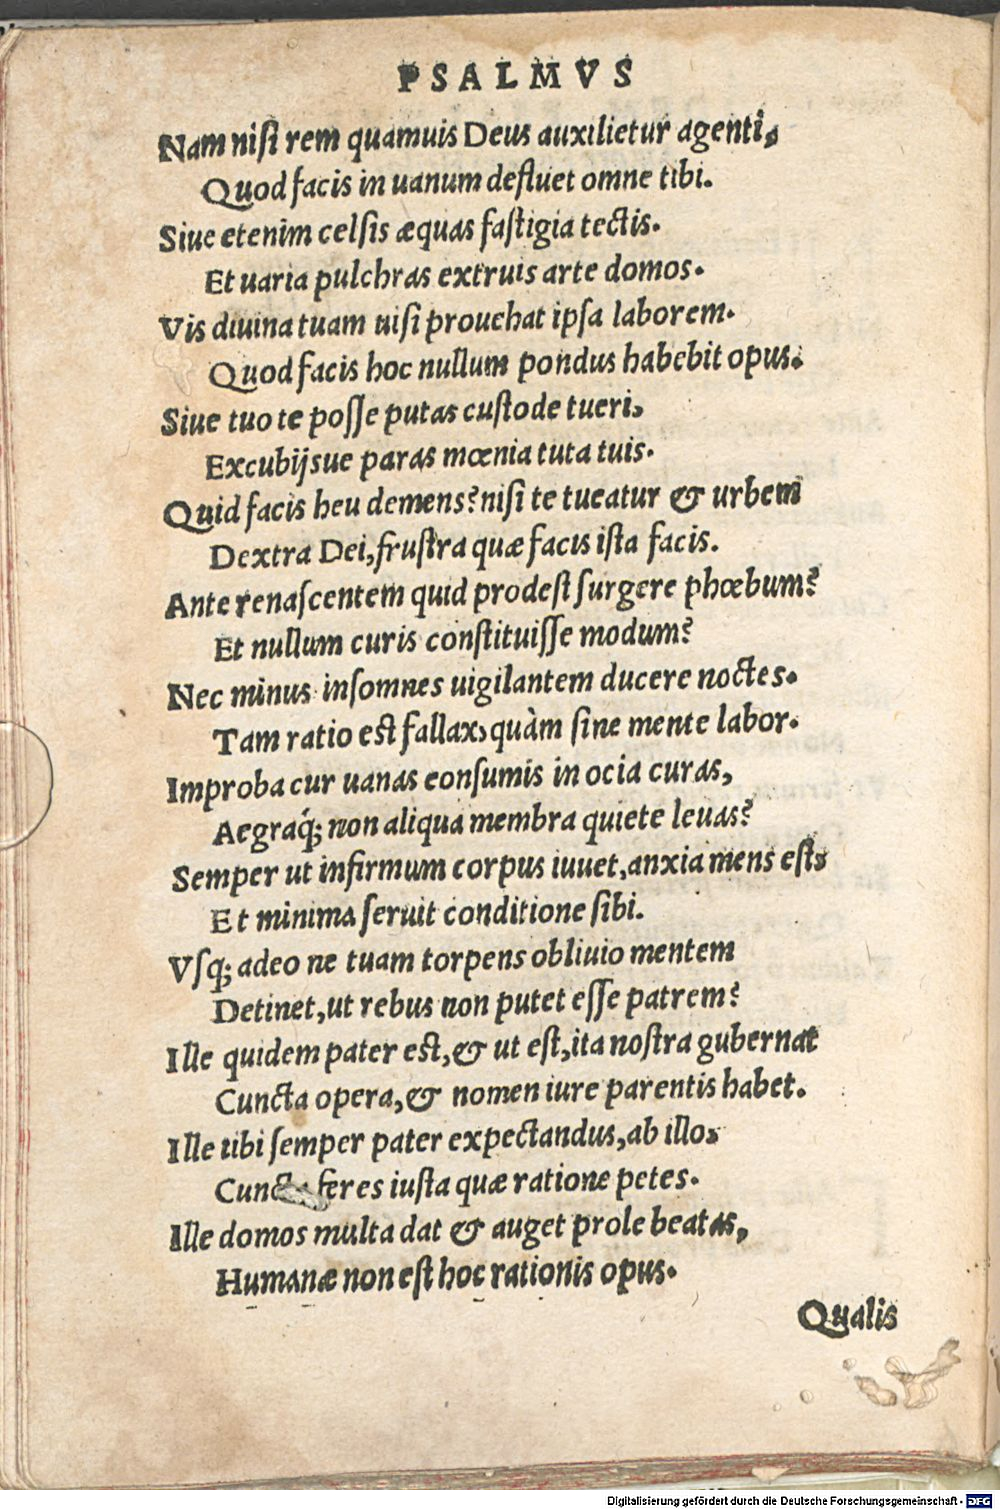 PSALMVS
Nam nisi rem quamuis Deus auxilietur agenti,
Quod facis in uanum defluet omne tibi.
Siue etenim celsis æquas fastigia tectis.
Et uaria pulchras extruis arte domos.
Vis diuina tuam nisi prouehat ipsa laborem.
Quod facis hoc nullum pondus habebit opus.
Siue tuo te posse putas custode tueri,
Excubijsue paras mœnia tuta tuis.
Quid facis heu demens? nisi te tueatur & urbem
Dextra Dei, frustra quæ facis ista facis.
Ante renascentem quid prodest surgere phœbum?
Et nullum curis constituisse modum?
Nec minus insomnes uigilantem ducere noctes.
Tam ratio est fallax, quàm sine mente labor.
Improba cur uanas consumis in ocia curas,
Aegraq; non aliqua membra quiete leuas?
Semper ut infirmum corpus iuuet, anxia mens est,
Et minima seruit conditione sibi.
Vsq; adeo ne tuam torpens obliuio mentem
Detinet, ut rebus non putet esse patrem?
Ille quidem pater est, & ut est, ita nostra gubernat
Cuncta opera, & nomen iure parentis habet.
Ille tibi semper pater expectandus, ab illo,
Cuncta feres iusta quæ ratione petes.
Ille domos multa dat & auget prole beatas,
Humanæ non est hoc rationis opus.
Qualis
Digitalisierung gefördert durch die Deutsche Forschungsgemeinschaft - DFG